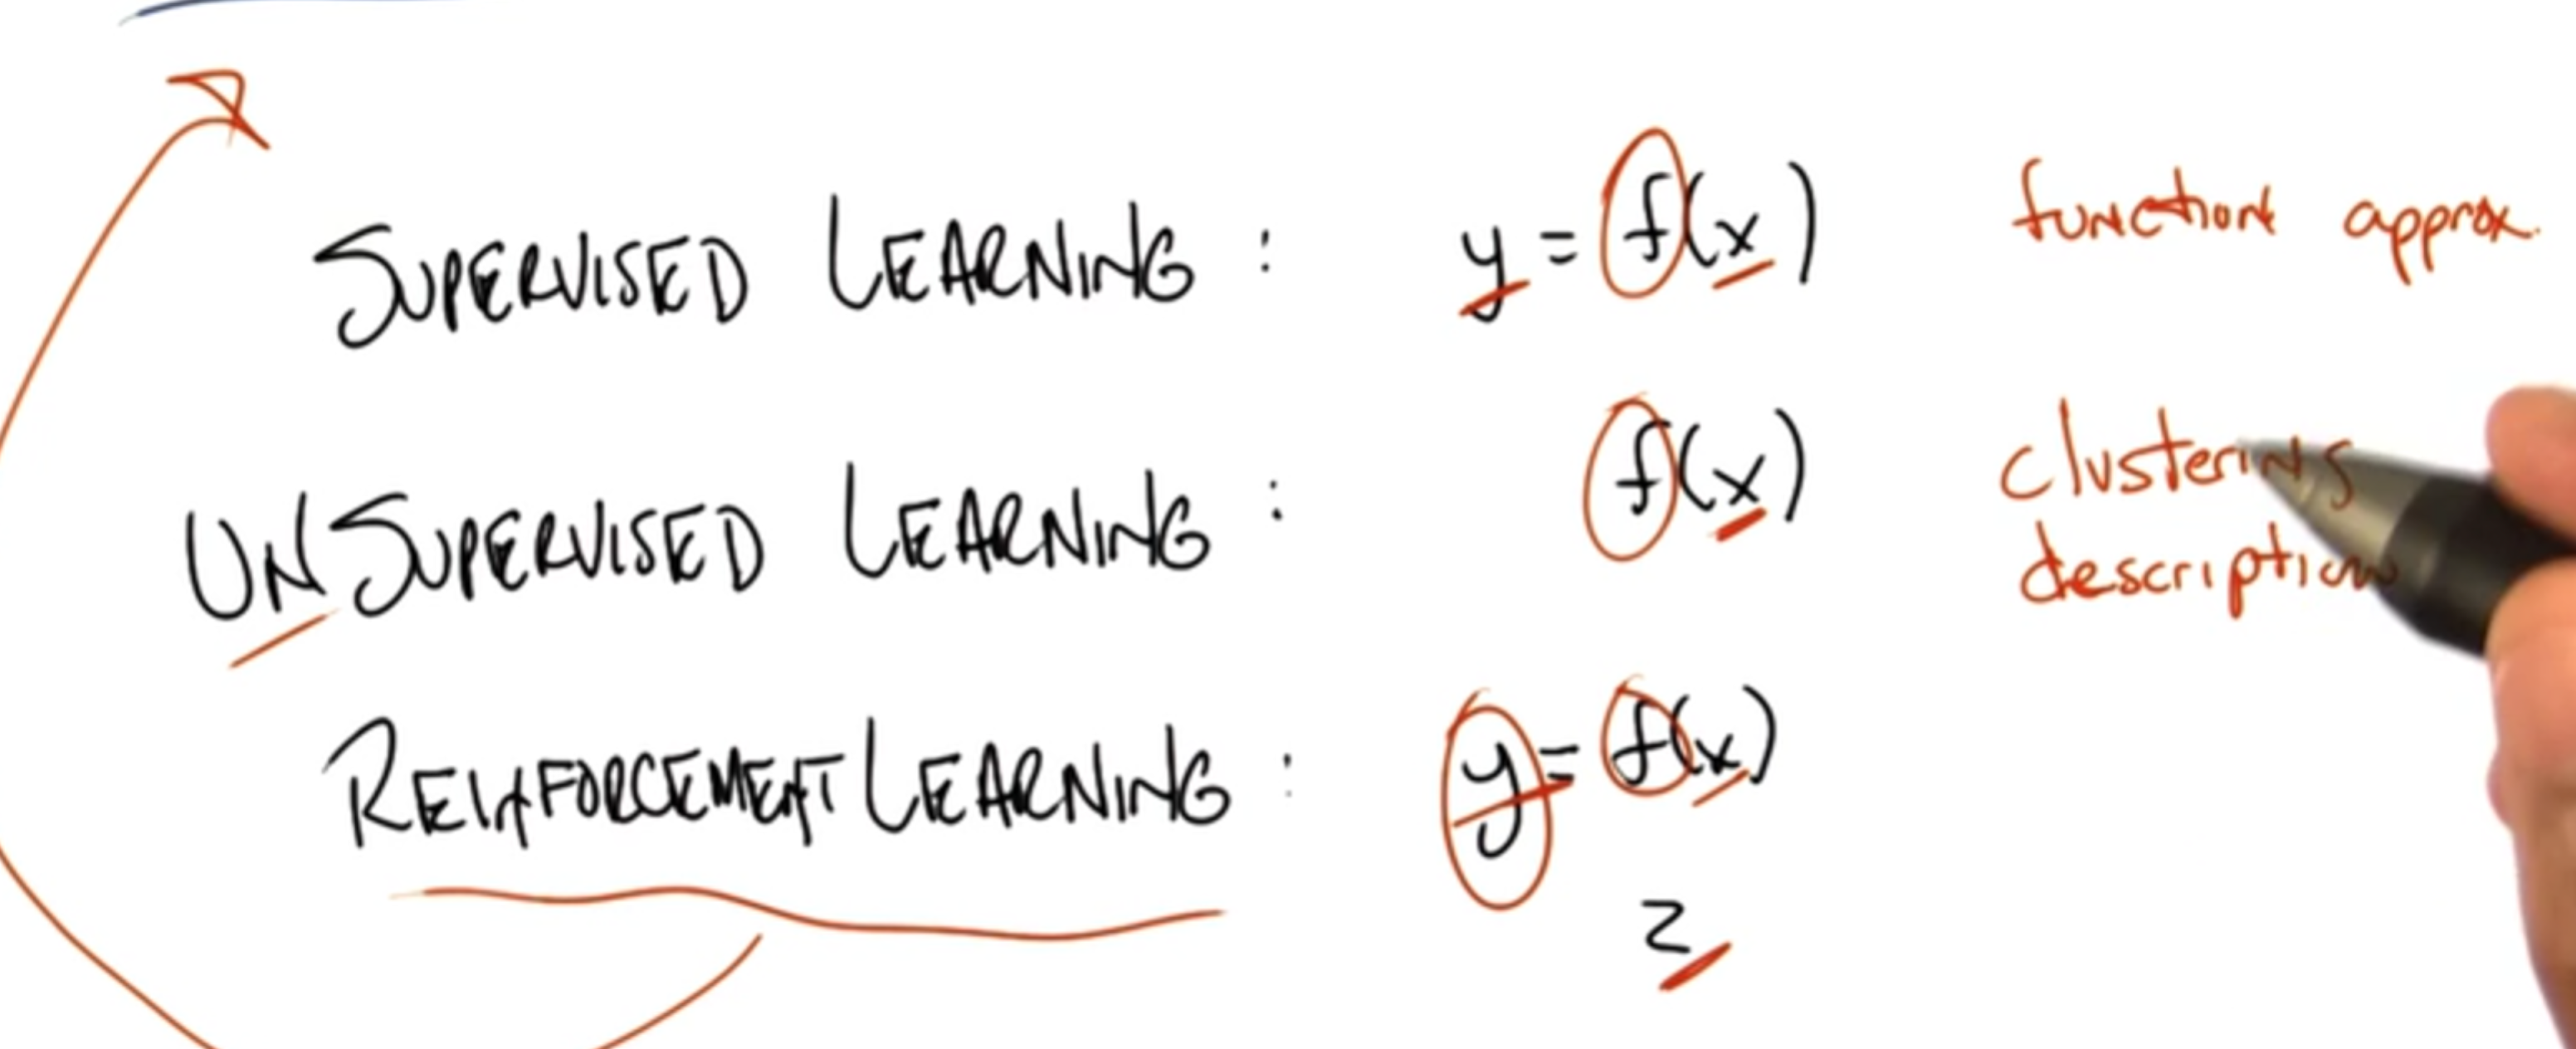 SUPERVISED LEARNING : y = f(x) function approx.
UNSUPERVISED LEARNING : f(x) clustering
description
REINFORCEMENT LEARNING : y = f(x)
z